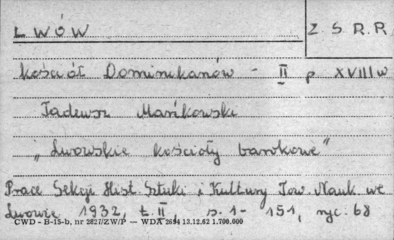 LWÓW
Z S R R
Kościół Dominikanów - II p XVIII w
Tadeusz Mańkowski
„Lwowskie kościoły barokowe"
Prace Sekcji Hist. Sztuki i Kultury Tow. Nauk. we
Lwowie 1932, t. II, s. 1-151, ryc. 68
CWD - B-15-b, nr 2827/ZW/P — WDA 2694 13.12.62 1.700.000